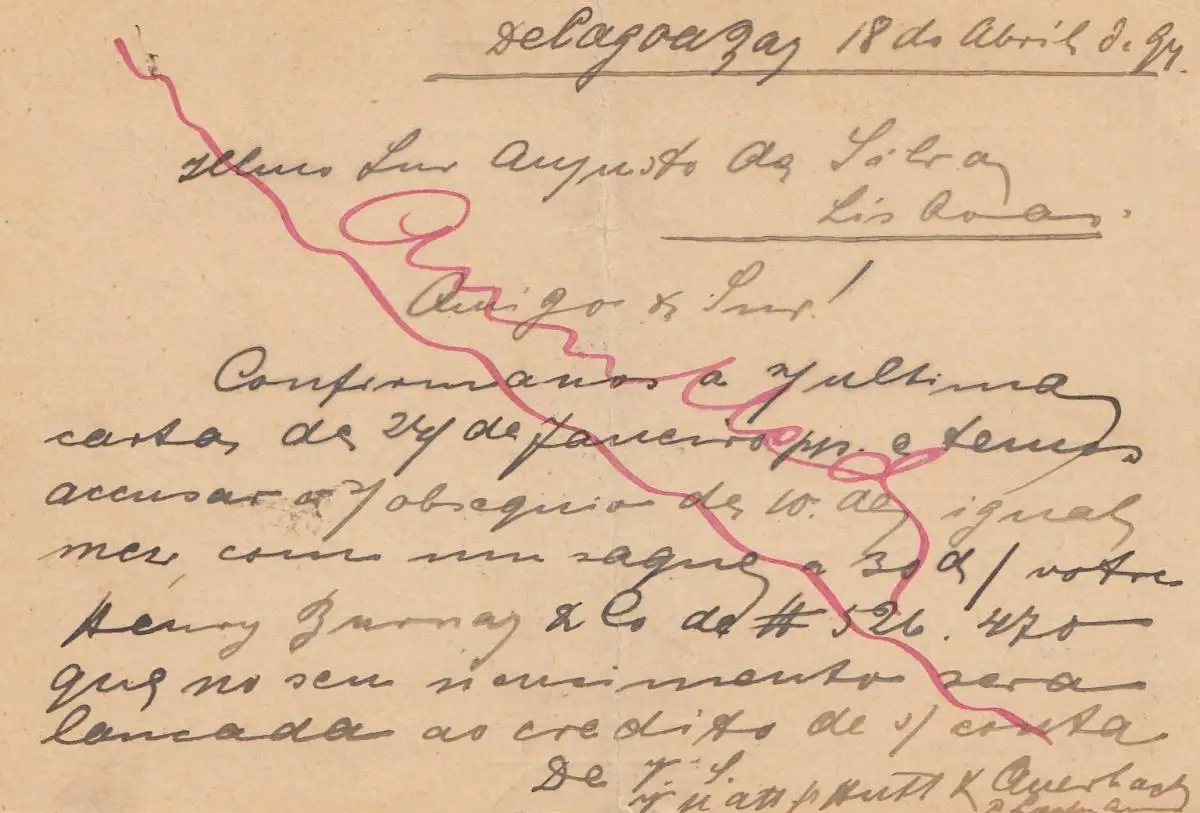 Delagoabay 18 de Abril d. 94.
Illmo Snr Augusto da Silva
Lisboa.
Amigo & Snr!
Confirmamos a n/ ultima
carta de 24 de Janeiro pp. e temos
accusar o s/ obsequio de 10. de igual
mez com um saque a 30 d/
Henry Burnay & Co de # 526.470
que no seu vencimento sera
lancada ao credito de s/ conta
De V. S.
Auerbach
Annullad